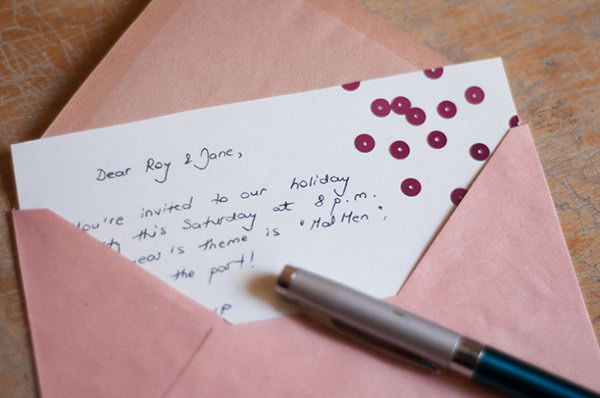 Dear Roy & Jane,
You're invited to our holiday
this Saturday at 8 p.m.
year's theme is "Mad Men",
the part!